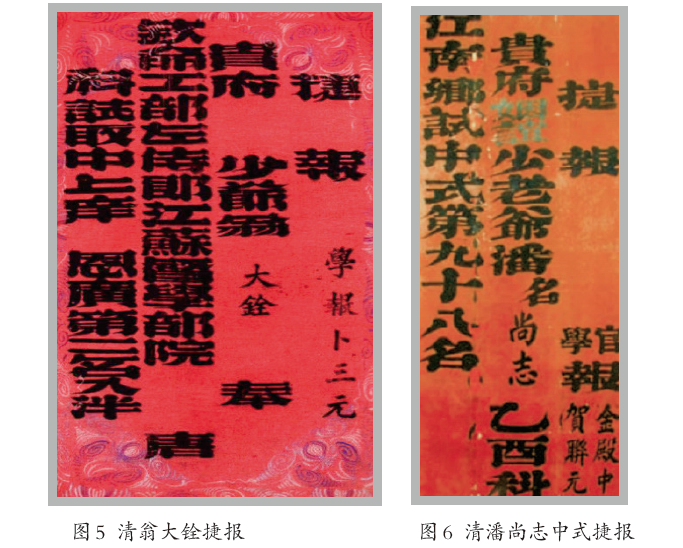 捷報 學報卜三元
貴府 少爺翁 大銓 奉
欽命工部左侍郎江蘇督學部院 唐
科試取中上庠 恩廣第二名入泮
捷報 官學報 金殿中賀聯元
貴府 少老爺潘名尚志 乙酉科
江南鄉試中式第九十八名
图5 清翁大铨捷报
图6 清潘尚志中式捷报